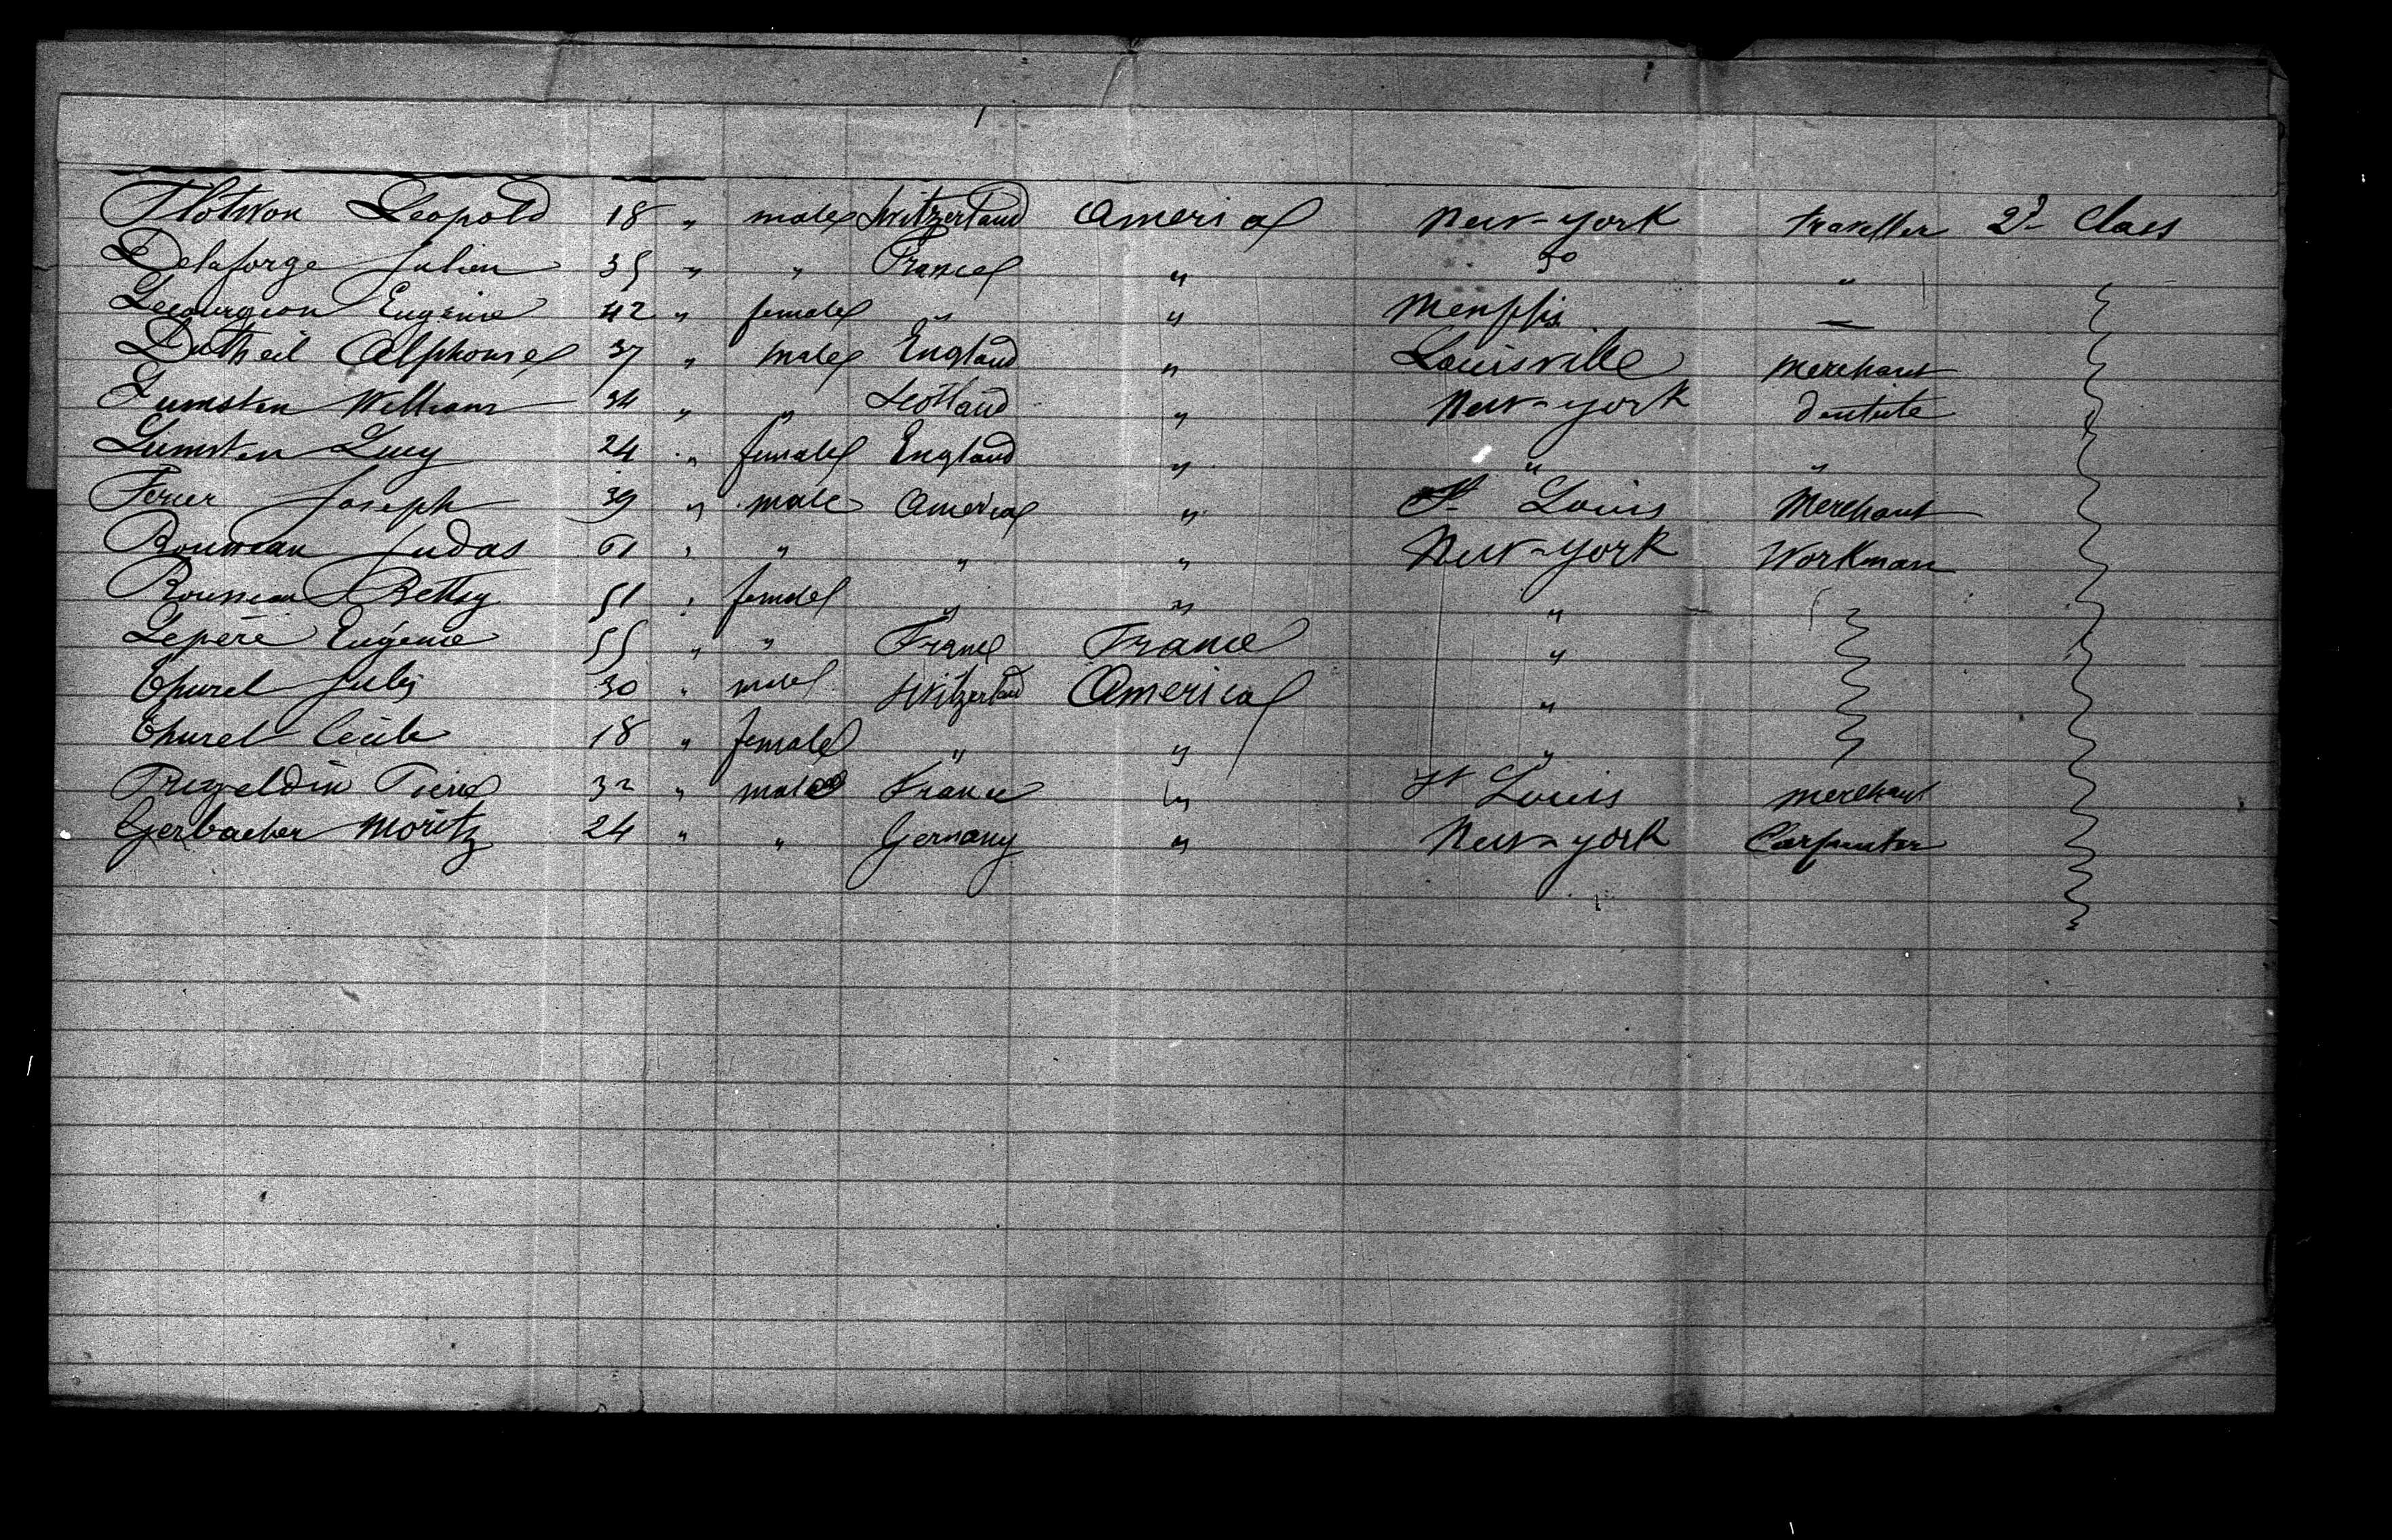 Leopold 18 " male Switzerland America New-York traveller 2d Class
Delaforge Julien 35 " " France " do "
Lecourgeon Eugénie 42 " female " " Menphis —
Dutheil Alphonse 37 " male England " Louisville merchant
Lumsten William 34 " " Scotland " New-York dentiste
Lumsten Lucy 24 " female England " " "
Ferrer Joseph 39 " male America " St Louis Merchant
Rousseau Judas 61 " " " " New-York Workman
Rousseau Betsy 51 " female " " "
Lepère Eugénie 55 " " France France "
Thurel Jules 30 " male Switzerland America "
Thurel Cécile 18 " female " " "
Pierre 32 " male France " St Louis merchant
Gerbacher Moritz 24 " " Germany " New-York Carpenter